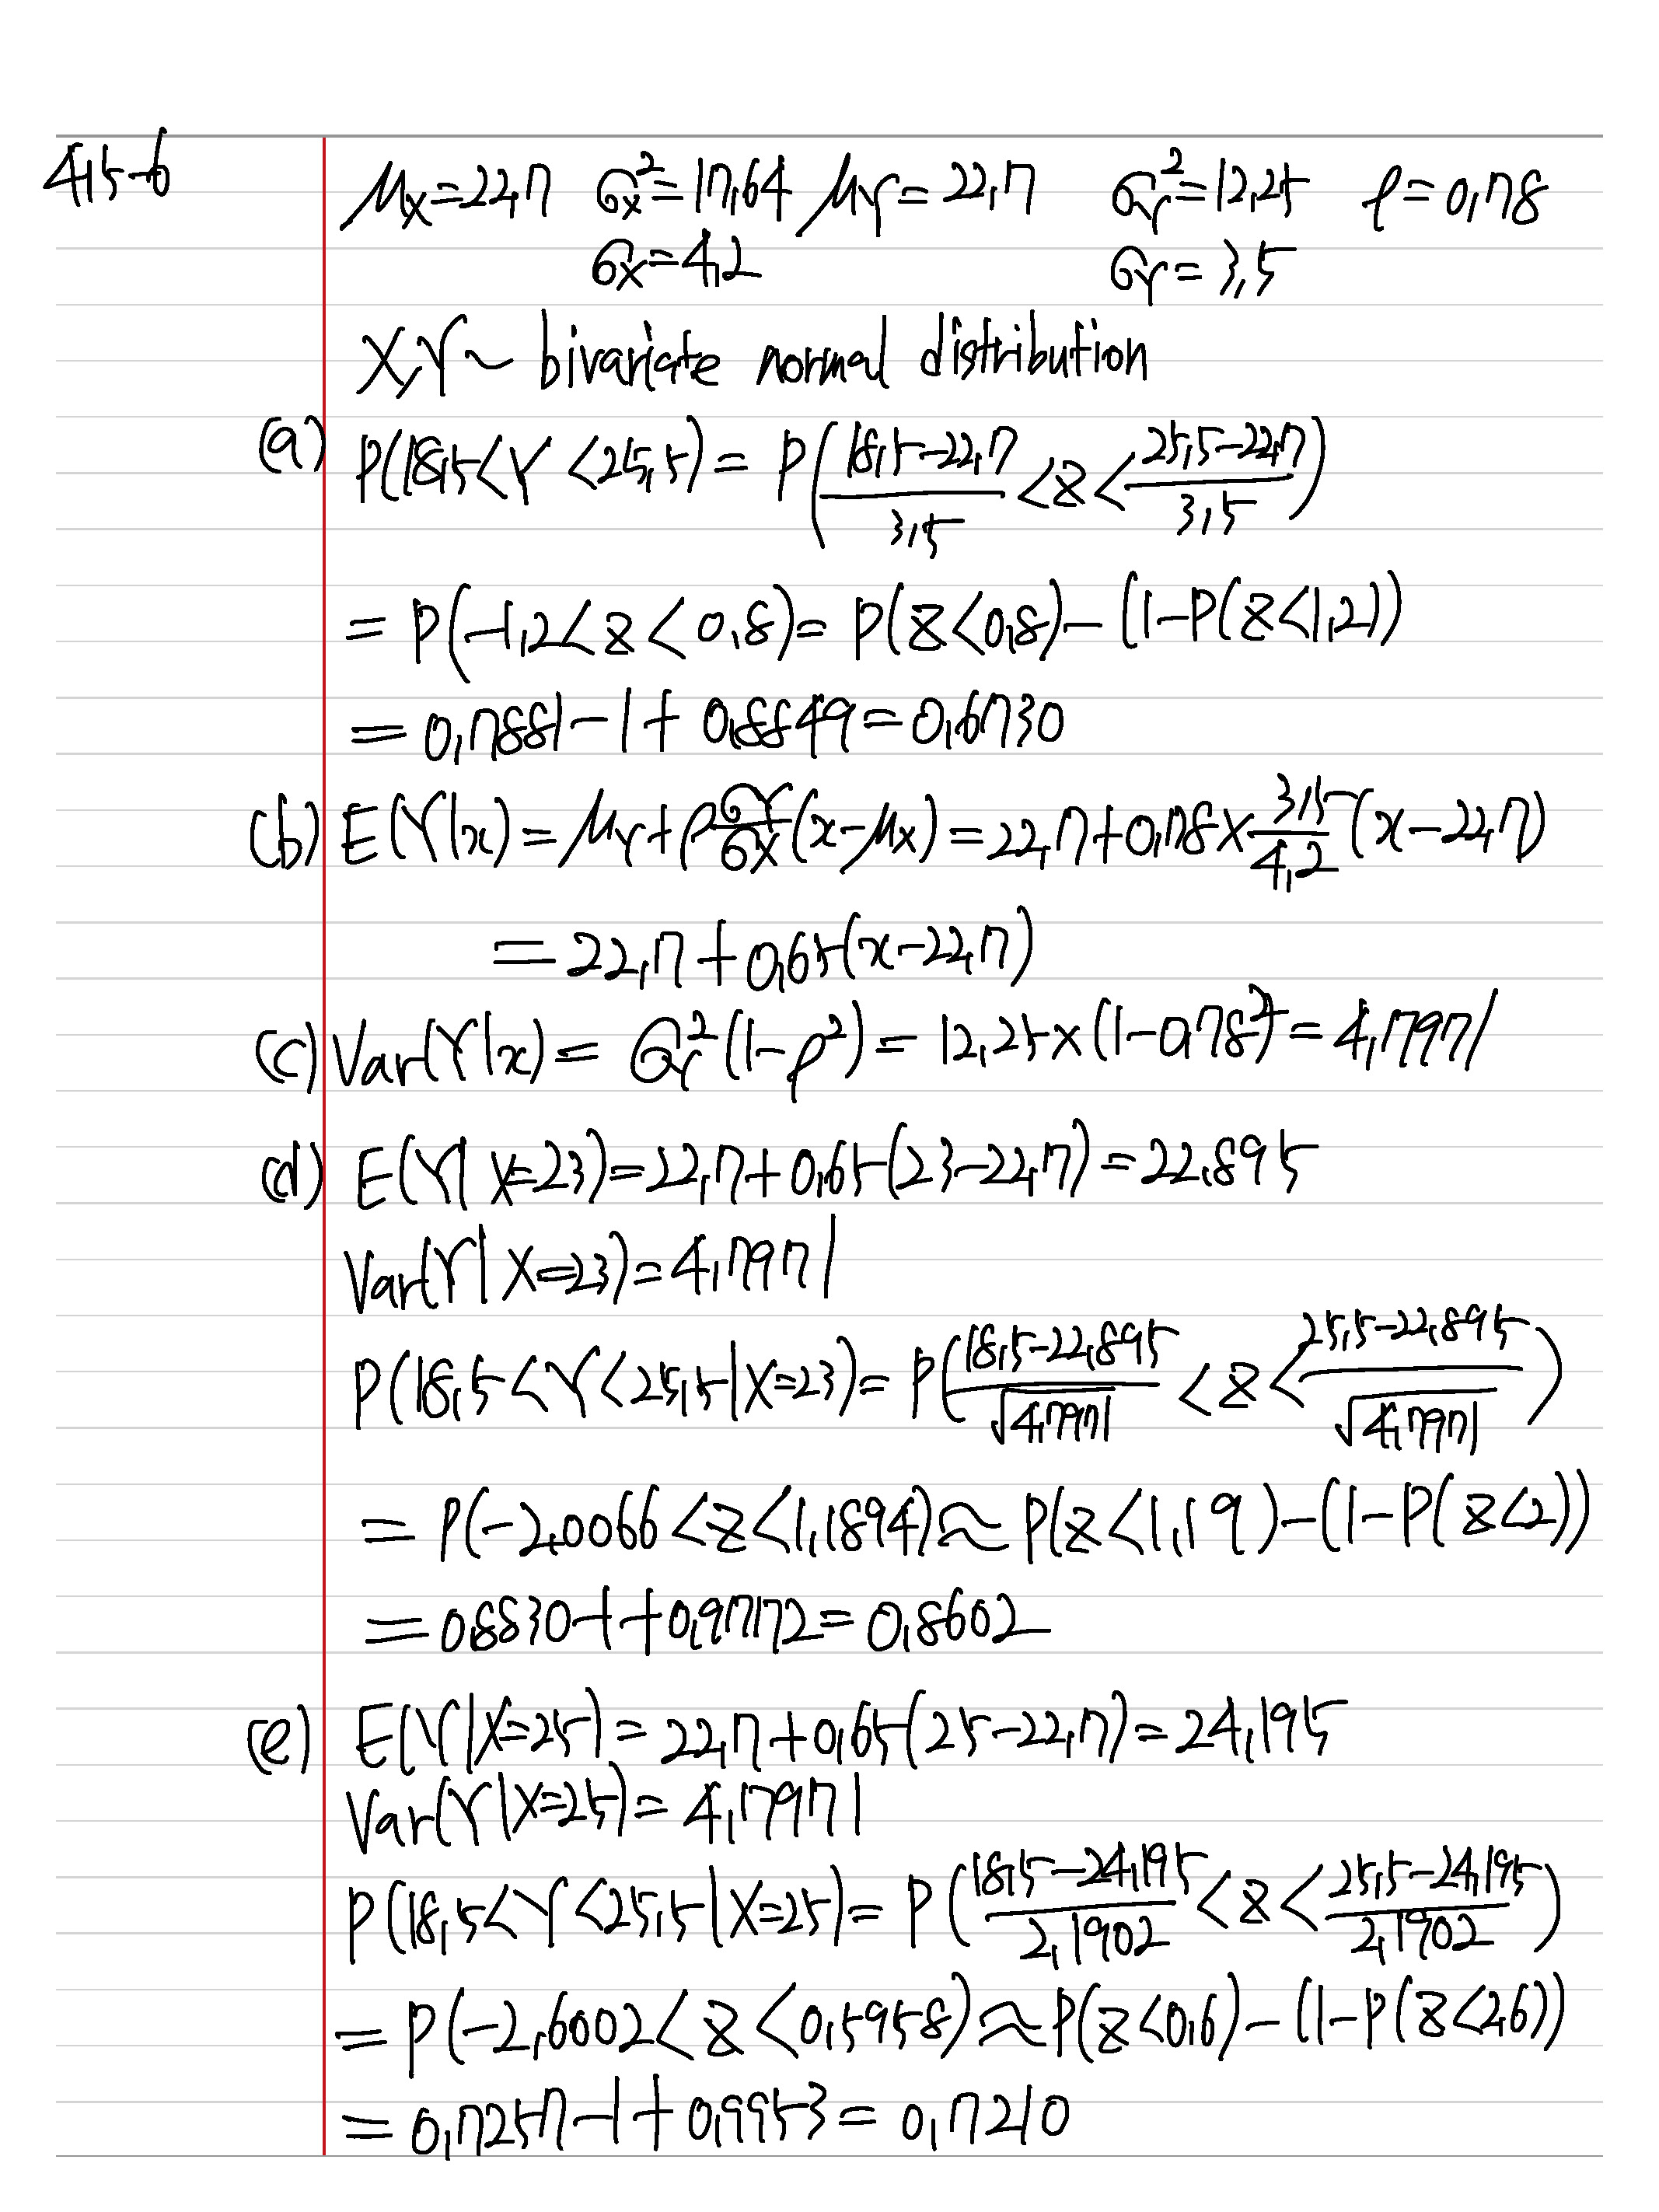 4.5-6
μ_X=22.7 σ_X²=17.64 μ_Y=22.7 σ_Y²=12.25 ρ=0.78
σ_X=4.2 σ_Y=3.5
X,Y~ bivariate normal distribution
(a) P(18.5<Y<25.5)=P((18.5-22.7)/3.5<z<(25.5-22.7)/3.5)
=P(-1.2<z<0.8)=P(z<0.8)-(1-P(z<1.2))
=0.7881-1+0.8849=0.6730
(b) E(Y|x)=μ_Y+ρ(σ_Y/σ_X)(x-μ_X)=22.7+0.78×(3.5/4.2)(x-22.7)
=22.7+0.65(x-22.7)
(c) Var(Y|x)=σ_Y²(1-ρ²)=12.25×(1-0.78²)=4.7971
(d) E(Y|X=23)=22.7+0.65(23-22.7)=22.895
Var(Y|X=23)=4.7971
P(18.5<Y<25.5|X=23)=P((18.5-22.895)/√4.7971<z<(25.5-22.895)/√4.7971)
=P(-2.0066<z<1.1894)≈P(z<1.19)-(1-P(z<2))
=0.8830-1+0.9772=0.8602
(e) E(Y|X=25)=22.7+0.65(25-22.7)=24.195
Var(Y|X=25)=4.7971
P(18.5<Y<25.5|X=25)=P((18.5-24.195)/2.1902<z<(25.5-24.195)/2.1902)
=P(-2.6002<z<0.5958)≈P(z<0.6)-(1-P(z<2.6))
=0.7257-1+0.9953=0.7210